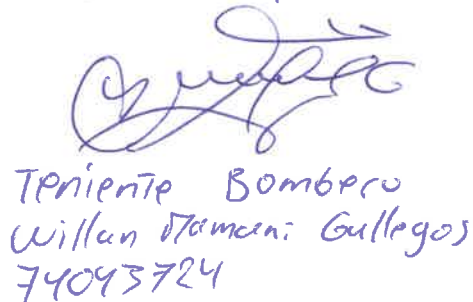 Teniente Bombero
Willan Mamani Gallegos
74043724